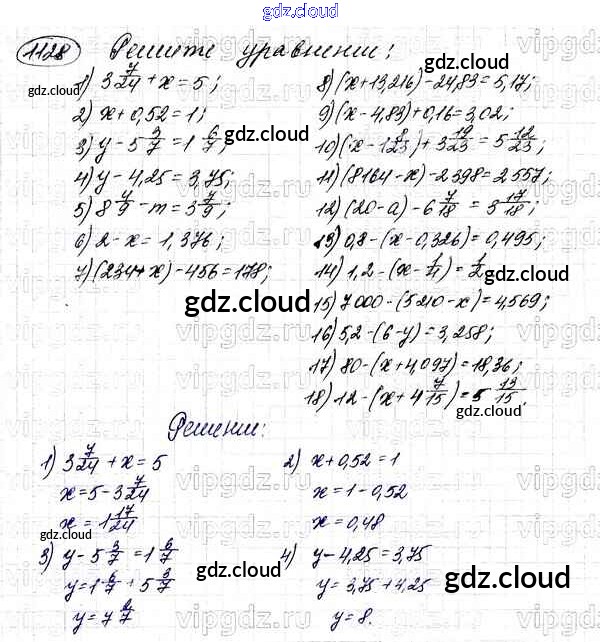 gdz.cloud
1128 Решите уравнении:
1) 3 7/24 + x = 5;
2) x + 0,52 = 1;
3) y - 5 3/7 = 1 6/7;
4) y - 4,25 = 3,75;
5) 8 4/9 - m = 3 7/9;
6) 2 - x = 1,376;
7) (234 + x) - 456 = 178;
8) (x + 13,216) - 24,83 = 5,17;
9) (x - 4,83) + 0,16 = 3,02;
10) (x - 1 8/23) + 3 19/23 = 5 12/23;
11) (8164 - x) - 2398 = 2557;
12) (20 - a) - 6 7/18 = 3 17/18;
13) 0,8 - (x - 0,326) = 0,495;
14) 1,2 - (x - 1/4) = 1/2
15) 7000 - (5210 - x) = 4,569;
16) 5,2 - (6 - y) = 3,258;
17) 80 - (x + 4,097) = 18,36;
18) 12 - (x + 4 7/15) = 5 13/15.
Решении:
1) 3 7/24 + x = 5
x = 5 - 3 7/24
x = 1 17/24
2) x + 0,52 = 1
x = 1 - 0,52
x = 0,48
3) y - 5 3/7 = 1 6/7
y = 1 6/7 + 5 3/7
y = 7 2/7
4) y - 4,25 = 3,75
y = 3,75 + 4,25
y = 8.
gdz.cloud
gdz.cloud
gdz.cloud
gdz.cloud
gdz.cloud
gdz.cloud
gdz.cloud
gdz.cloud
gdz.cloud
gdz.cloud